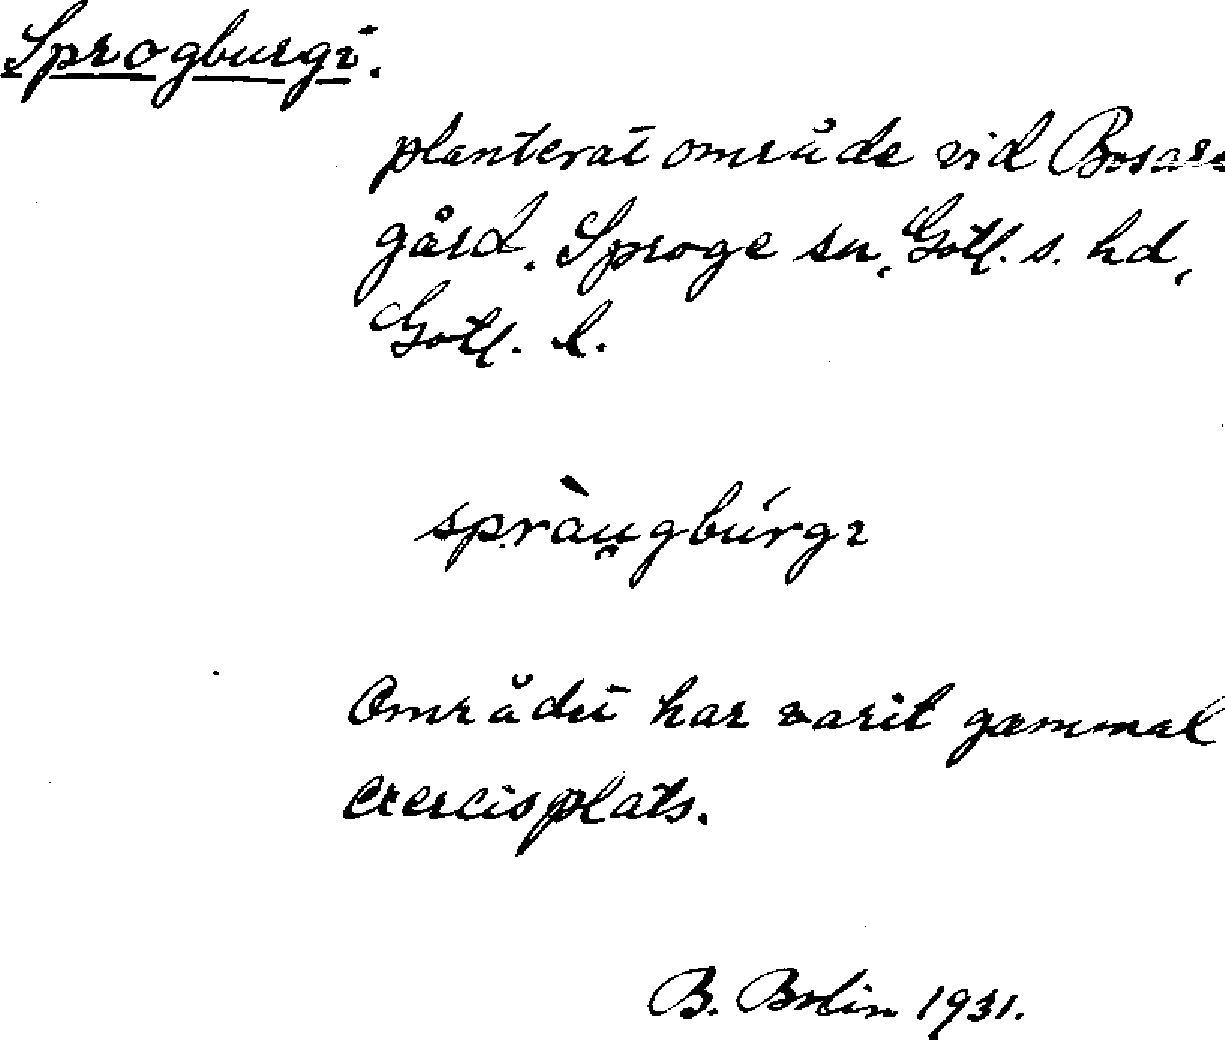 Sprogburgi.
planterat område vid Bosars
gård, Sproge sn, Gotl. s. hd,
Gotl. l.
spràu̯gbúrgı
Området har varit gammal
exercisplats.
B. Bolin 1931.